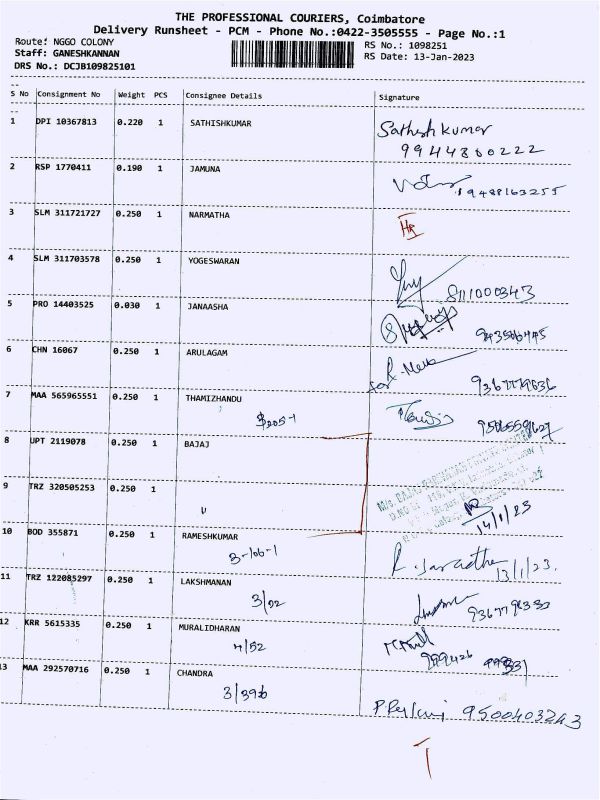 THE PROFESSIONAL COURIERS, Coimbatore
Delivery Runsheet - PCM - Phone No.:0422-3505555 - Page No.:1
Route: NGGO COLONY
RS No.: 1098251
Staff: GANESHKANNAN
RS Date: 13-Jan-2023
DRS No.: DCJB109825101
S No Consignment No Weight PCS Consignee Details Signature
1 DPI 10367813 0.220 1 SATHISHKUMAR Sathish kumar
9944860222
2 RSP 1770411 0.190 1 JAMUNA 9488163255
3 SLM 311721727 0.250 1 NARMATHA
4 SLM 311703578 0.250 1 YOGESWARAN
8111000343
5 PRO 14403525 0.030 1 JANAASHA
6 CHN 16067 0.250 1 ARULAGAM
for
7 MAA 565965551 0.250 1 THAMIZHANDU
8 UPT 2119078 0.250 1 BAJAJ
9 TRZ 320505253 0.250 1
"
14/1/23
10 BOD 355871 0.250 1 RAMESHKUMAR
3-106-1
13/1/23.
11 TRZ 122085297 0.250 1 LAKSHMANAN
3/22
12 KRR 5615335 0.250 1 MURALIDHARAN
4/52
13 MAA 292570716 0.250 1 CHANDRA
3/396
9500403243